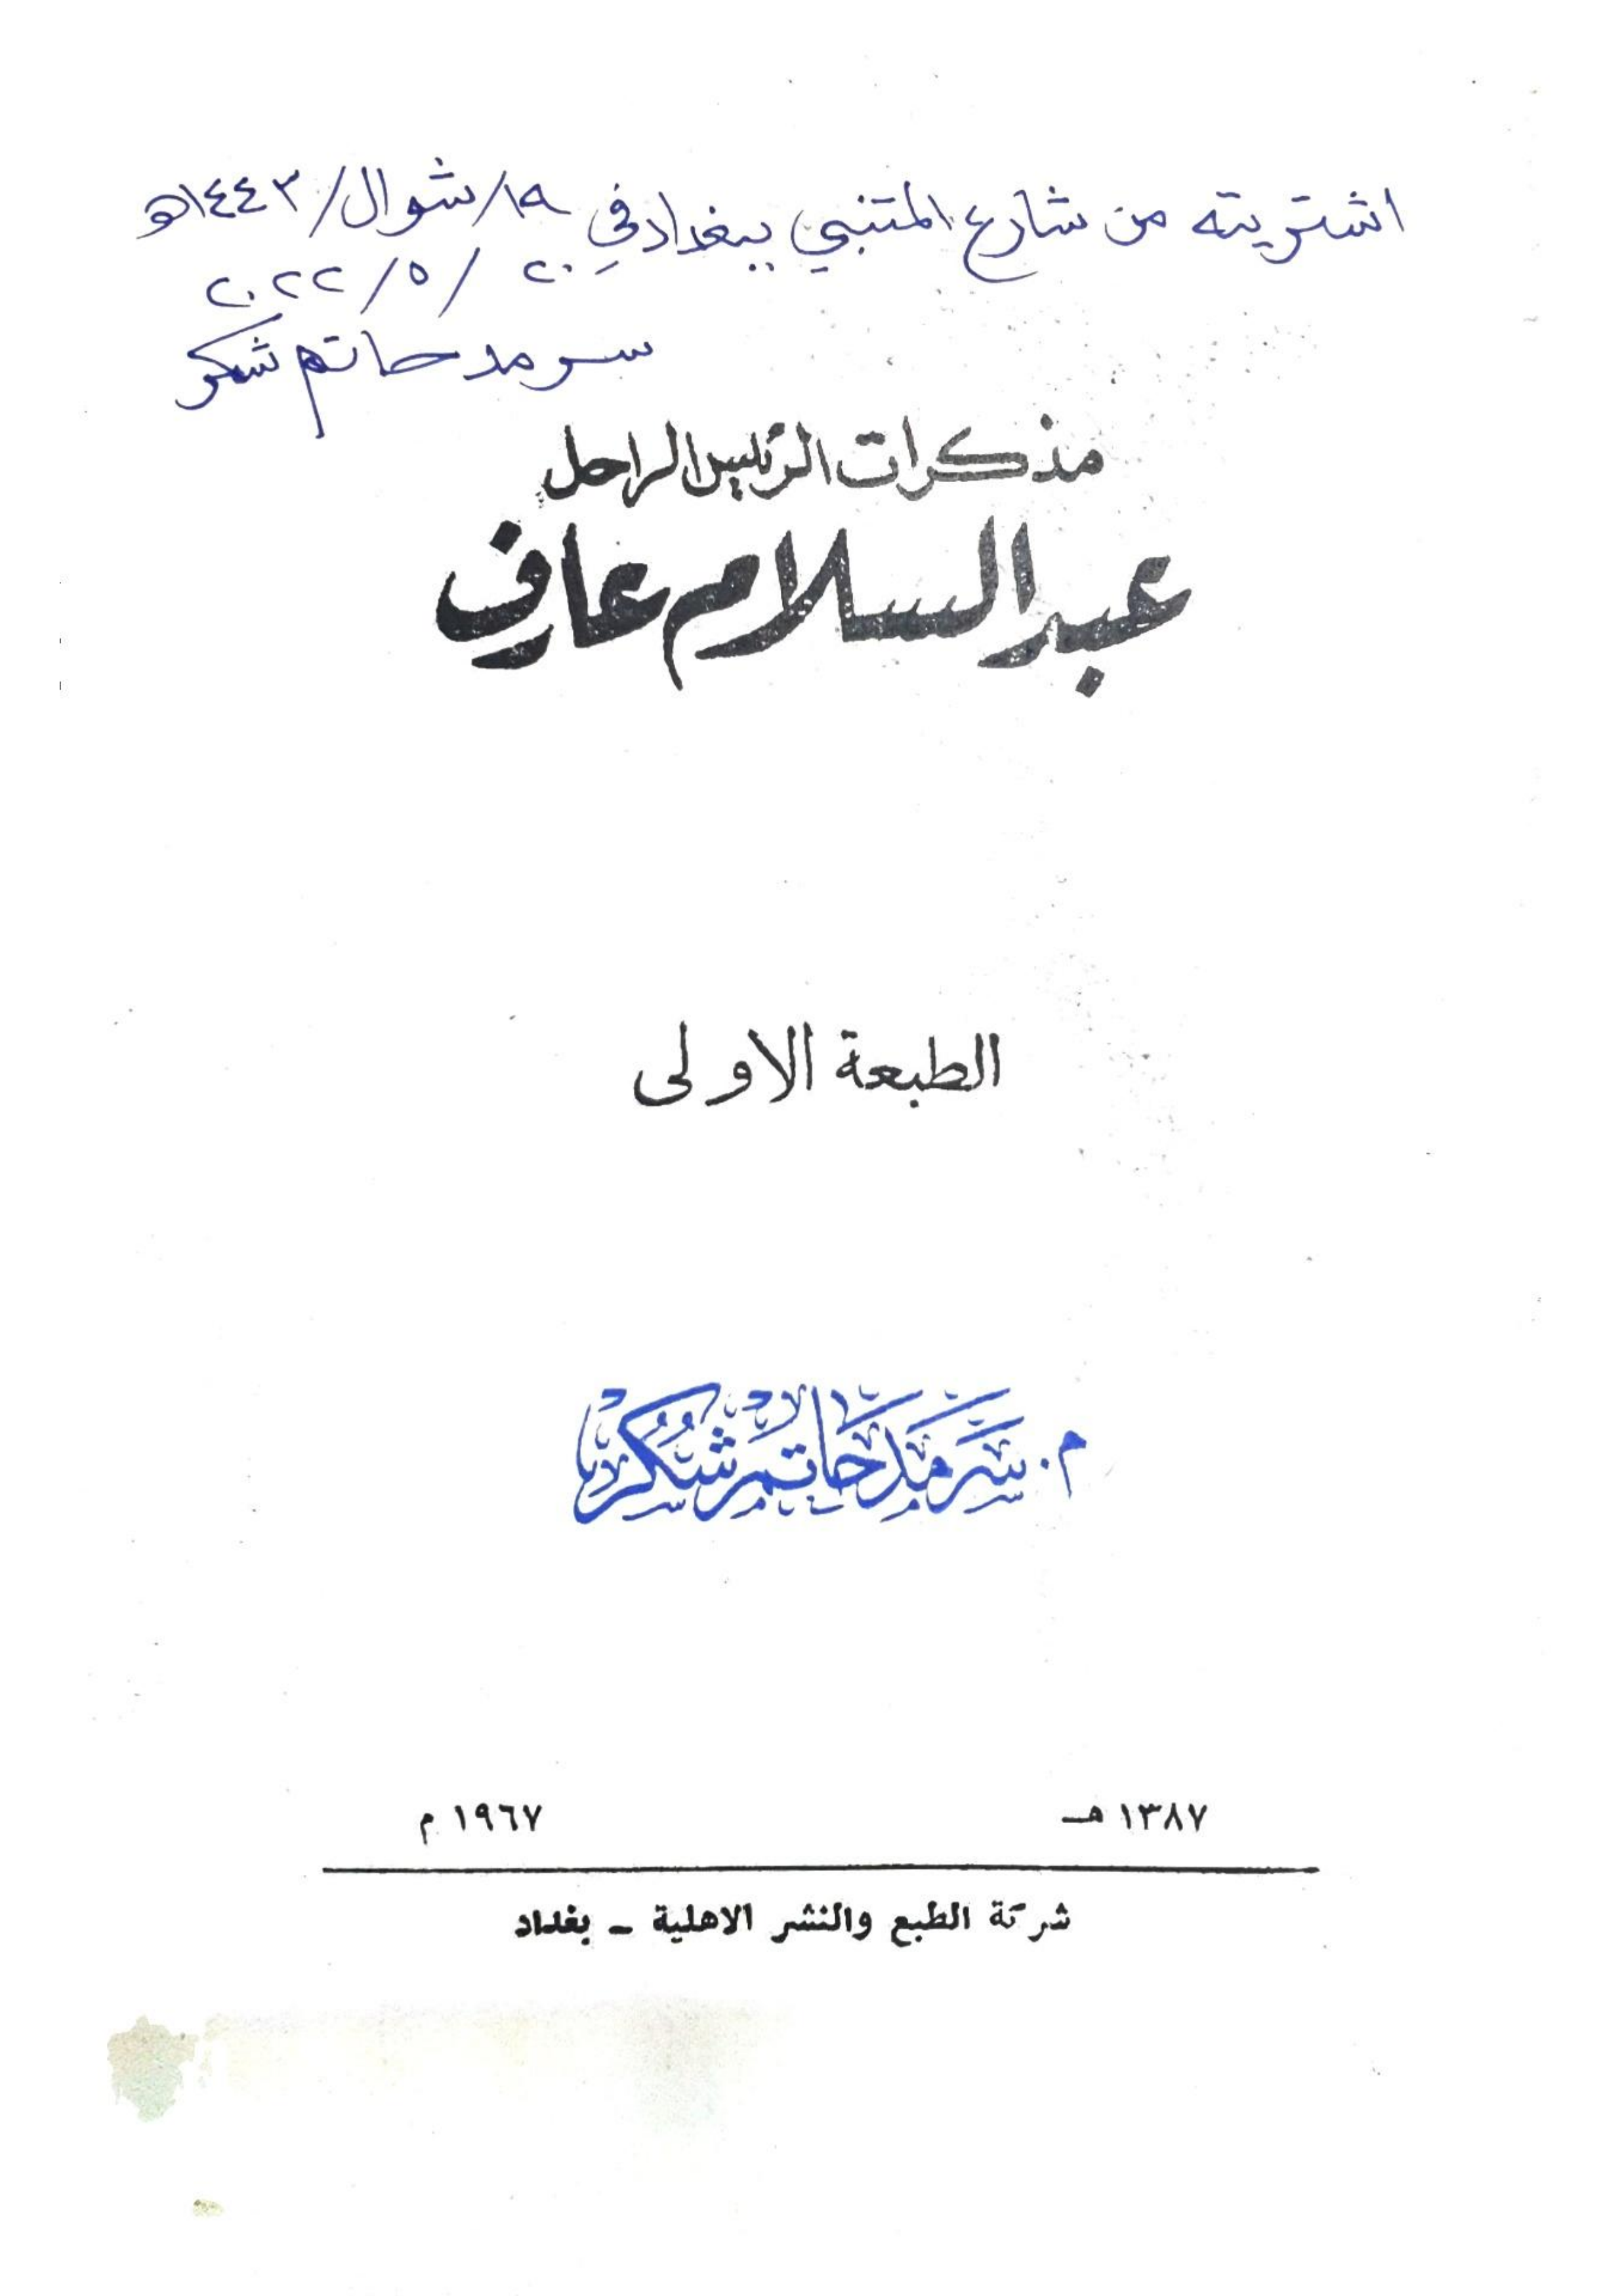 اشتريته من شارع المتنبي ببغداد في ١٩/شوال/١٤٤٣هـ
٢٠/٥/٢٠٢٢
سرمد حاتم شكر
مذكرات الرئيس الراحل
عبد السلام عارف
الطبعة الاولى
م. سرمد حاتم شكر
١٣٨٧ هـ ١٩٦٧ م
شركة الطبع والنشر الاهلية - بغداد